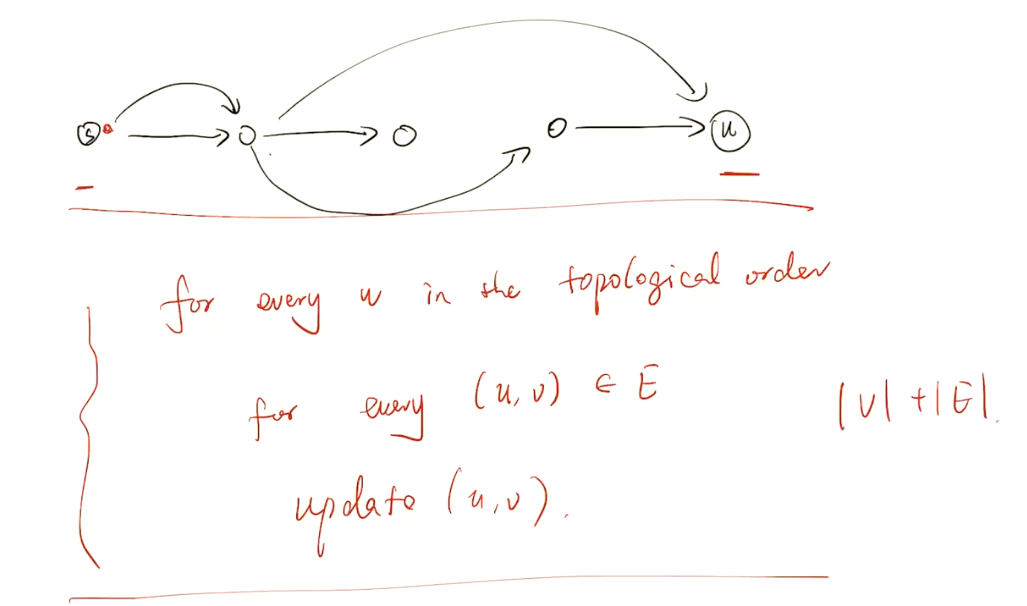 s u
for every u in the topological order
for every (u, v) ∈ E
|V| + |E|.
update (u, v).